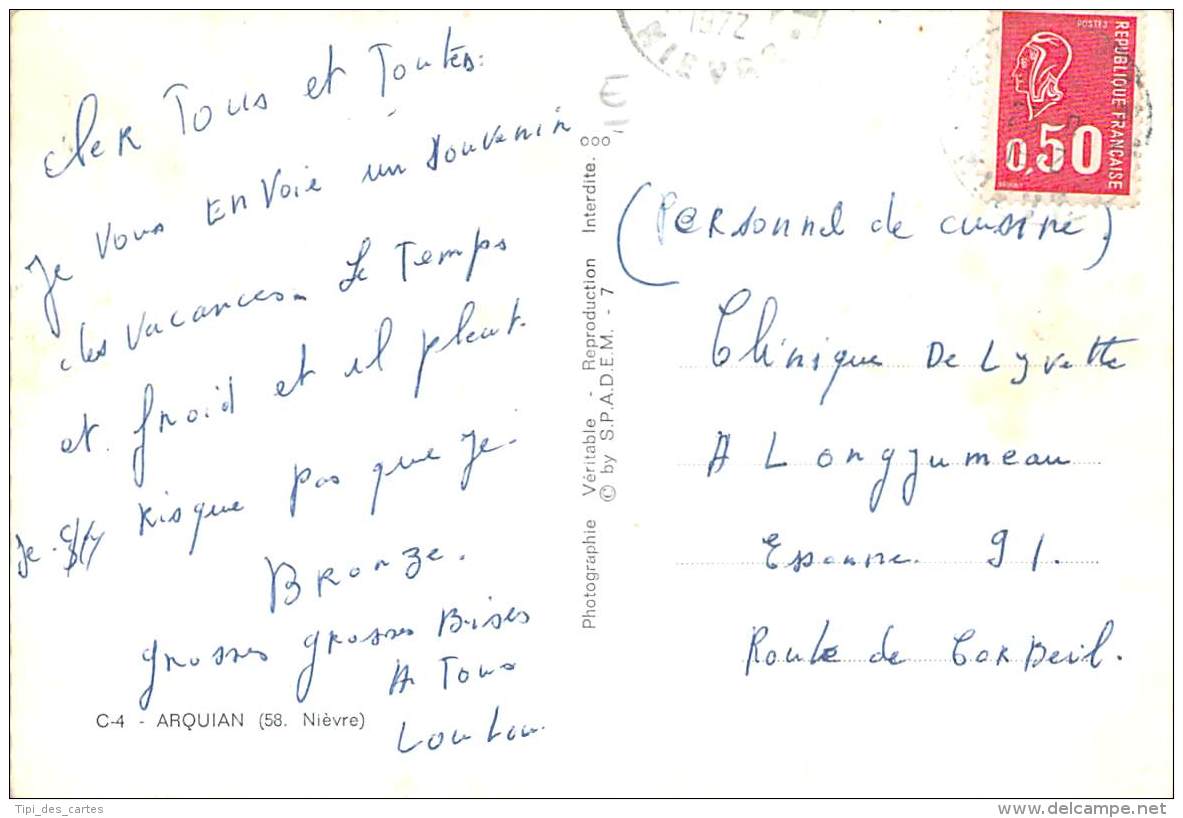 cher Tous et Toutes:
Je vous Envoie un souvenir
des vacances. Le Temps
et froid et il pleut.
Je risque pas que je.
Bronze.
grosses grosses Bises
A Tous
Loulou.
C-4 - ARQUIAN (58. Nièvre)
Photographie Véritable - Reproduction Interdite.
© by S.P.A.D.E.M. - 7
1972
POSTES
REPUBLIQUE FRANÇAISE
0,50
(Personnel de cuisine)
Clinique De Lyvette
A Longjumeau
Essonne 91.
Route de CorBeil.
Tipi_des_cartes
delcampe.net